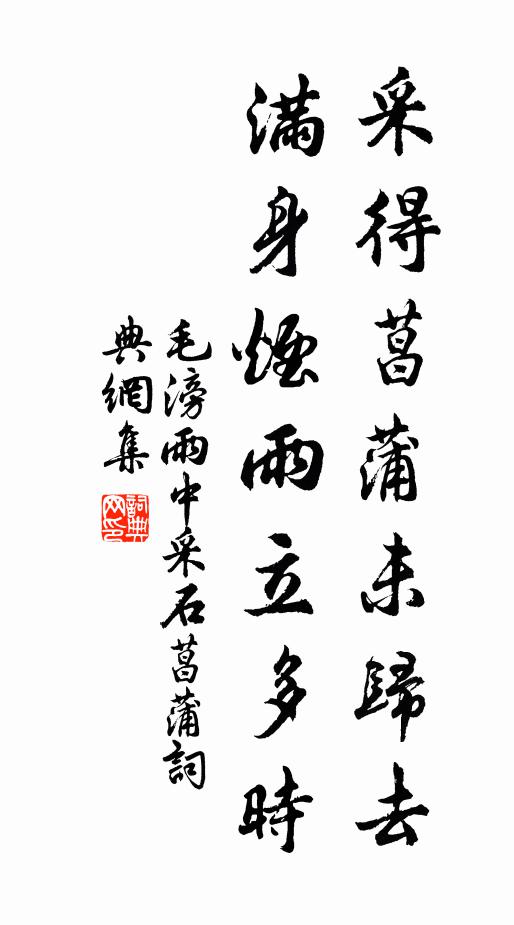 采得菖蒲未歸去
滿身煙雨立多時
毛滂雨中采石菖蒲詞
典網集
詞典網印